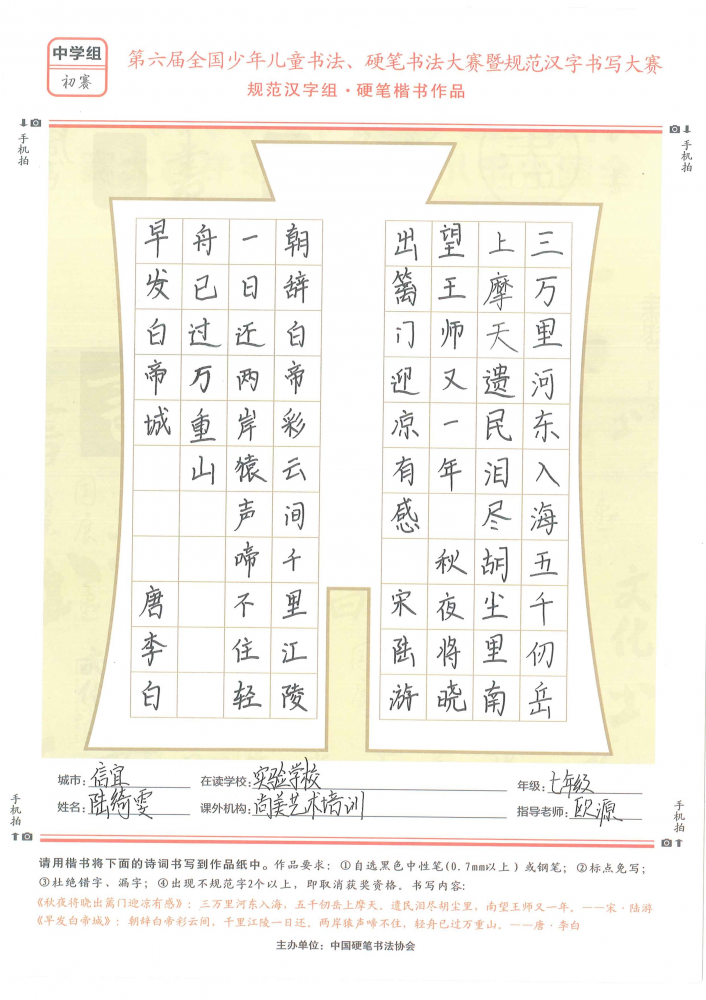 中学组
初赛
第六届全国少年儿童书法、硬笔书法大赛暨规范汉字书写大赛
规范汉字组·硬笔楷书作品
手机拍
手机拍
三万里河东入海五千仞岳
上摩天遗民泪尽胡尘里南
望王师又一年 秋夜将晓
出篱门迎凉有感 宋陆游
朝辞白帝彩云间千里江陵
一日还两岸猿声啼不住轻
舟已过万重山
早发白帝城 唐李白
城市：信宜 在读学校：实验学校 年级：七年级
姓名：陆绮雯 课外机构：尚美艺术培训 指导老师：欧源
手机拍
手机拍
请用楷书将下面的诗词书写到作品纸中。作品要求：①自选黑色中性笔(0.7mm以上)或钢笔；②标点免写；
③杜绝错字、漏字；④出现不规范字2个以上，即取消获奖资格。书写内容：
《秋夜将晓出篱门迎凉有感》：三万里河东入海，五千仞岳上摩天。遗民泪尽胡尘里，南望王师又一年。——宋·陆游
《早发白帝城》：朝辞白帝彩云间，千里江陵一日还。两岸猿声啼不住，轻舟已过万重山。——唐·李白
主办单位：中国硬笔书法协会